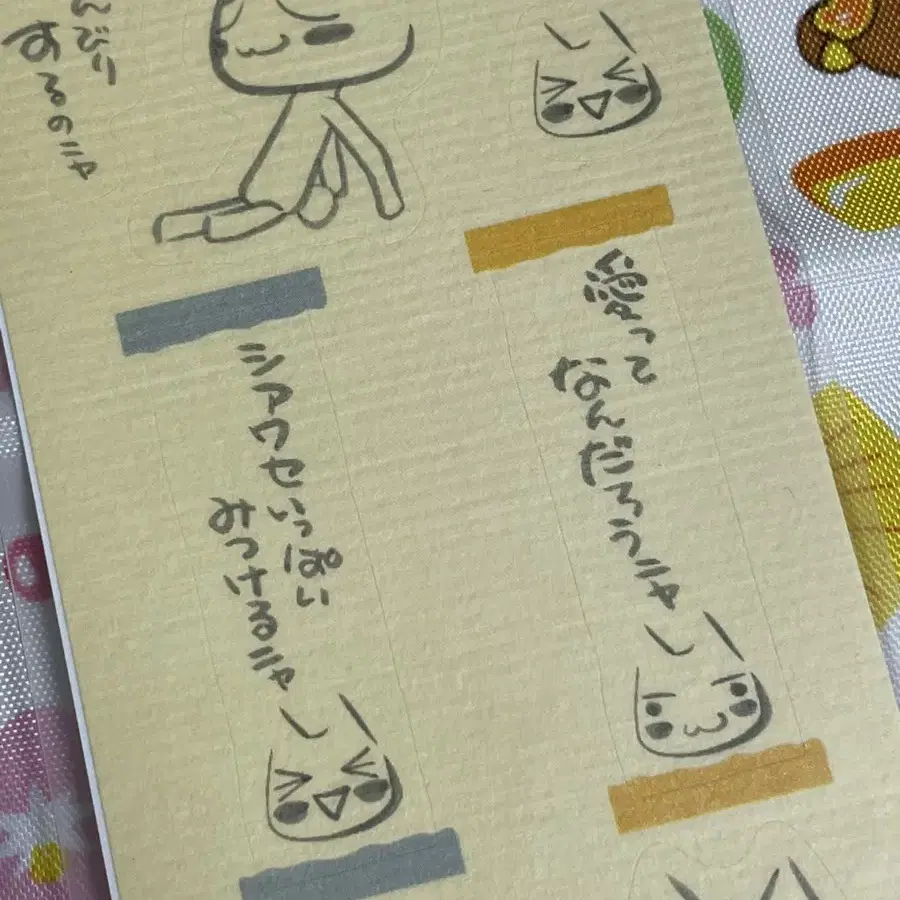 愛って
なんだろうニャ
シアワセいっぱい
あつまるニャ
んびり
するのニャ